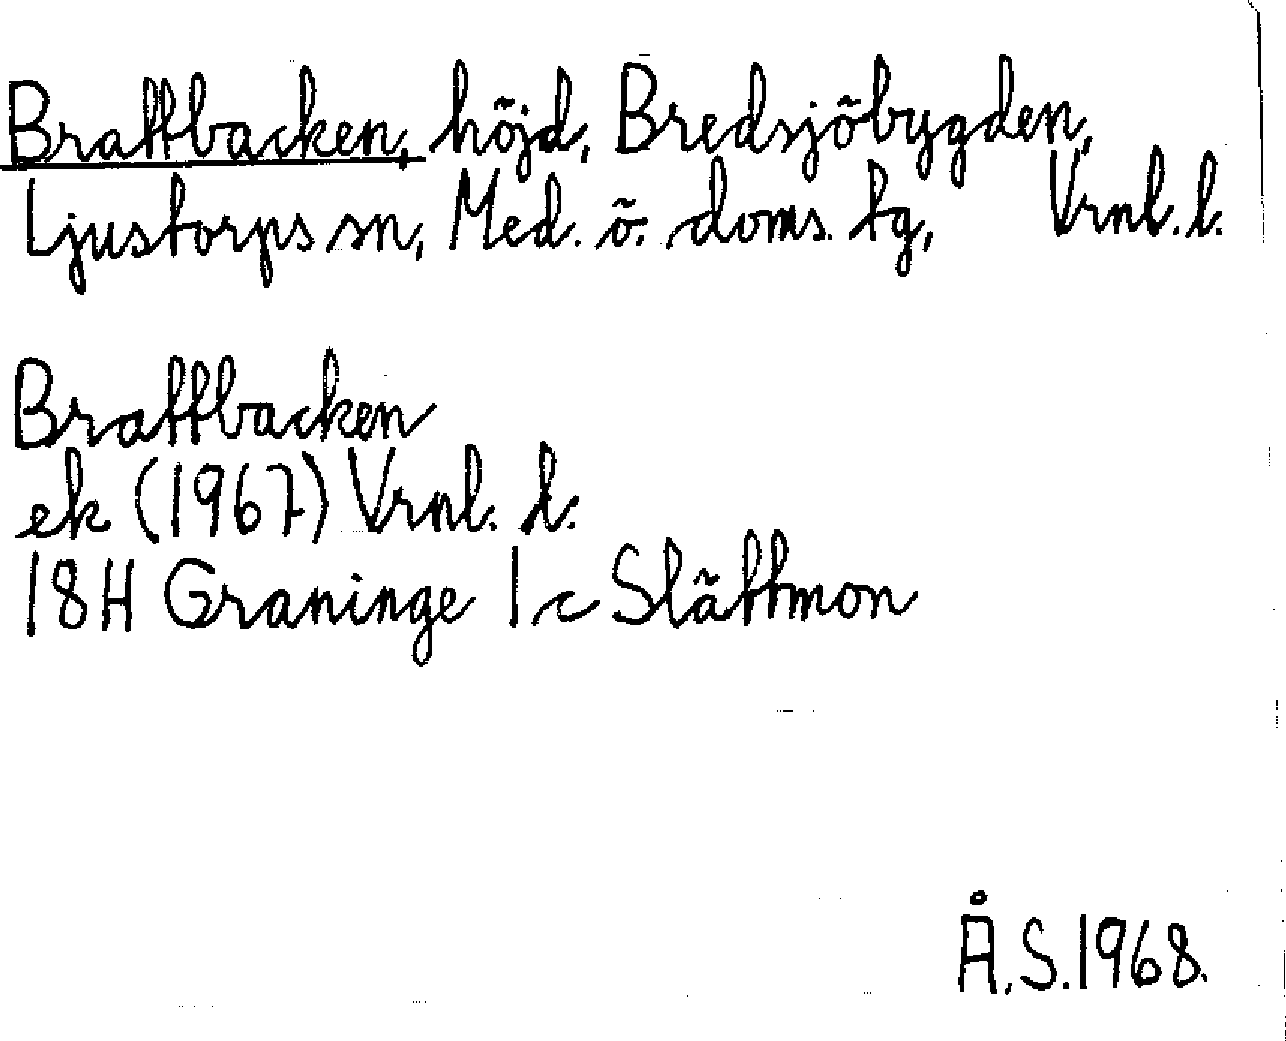 Brattbacken, höjd, Bredsjöbygden,
Ljustorps sn, Med. ö. doms. tg, Vrnl. l.
Brattbacken
ek (1967) Vrnl. l.
18H Graninge 1 c Slättmon
Å.S.1968.